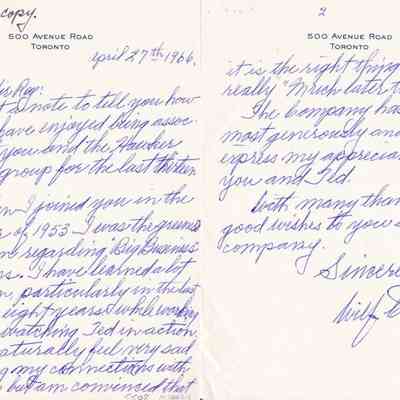 copy.
500 AVENUE ROAD
TORONTO
April 27th 1966.
Sir Roy:
a note to tell you how
have enjoyed being assoc-
you and the Hawker
group for the last thirteen
I joined you in the
of 1953 I was the greenest
regarding "Big Business"
I have learned a lot
particularly in the last
eight years while working
watching Ted in action
naturally feel very sad
my connections with
but I am convinced that
2
500 AVENUE ROAD
TORONTO
it is the right thing
really "Much later t
The Company has
most generously and
express my apprecia
you and Ted.
With many than
good wishes to you a
company.
Sincere
Wilf